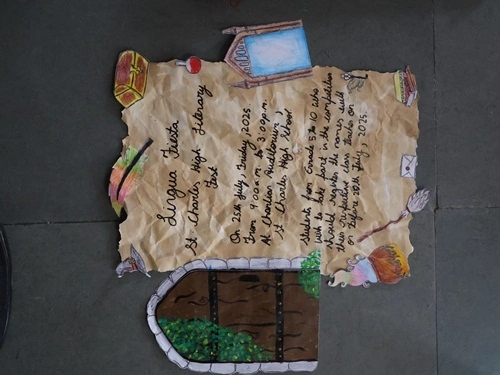 Lingua Fiesta
St Charles High Literary
Fest
On 25th July, Friday, 2025.
From 9:00a.m. to 3:00p.m.
At Charlian Auditorium,
St Charles High School
Students from Grade 5 to 10 who
wish to take part in the competition
should register the names with
their respective class teachers on
or before 20th July, 2025.